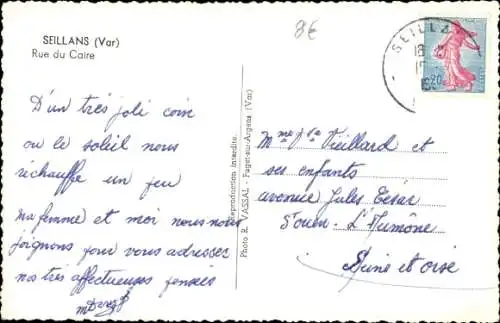 SEILLANS (Var)
Rue du Caire
8€
SEILLA
18
20
D'un très joli coin
ou le soleil nous
réchauffe un peu
ma femme et moi nous nous
joignons pour vous adresser
nos très affectueuses pensées
Reproduction interdite.
Photo R. VASSAL - Puget-sur-Argens (Var)
Mme Vieillard et
ses enfants
avenue Jules César
St Ouen - L'Aumône
Seine et oise